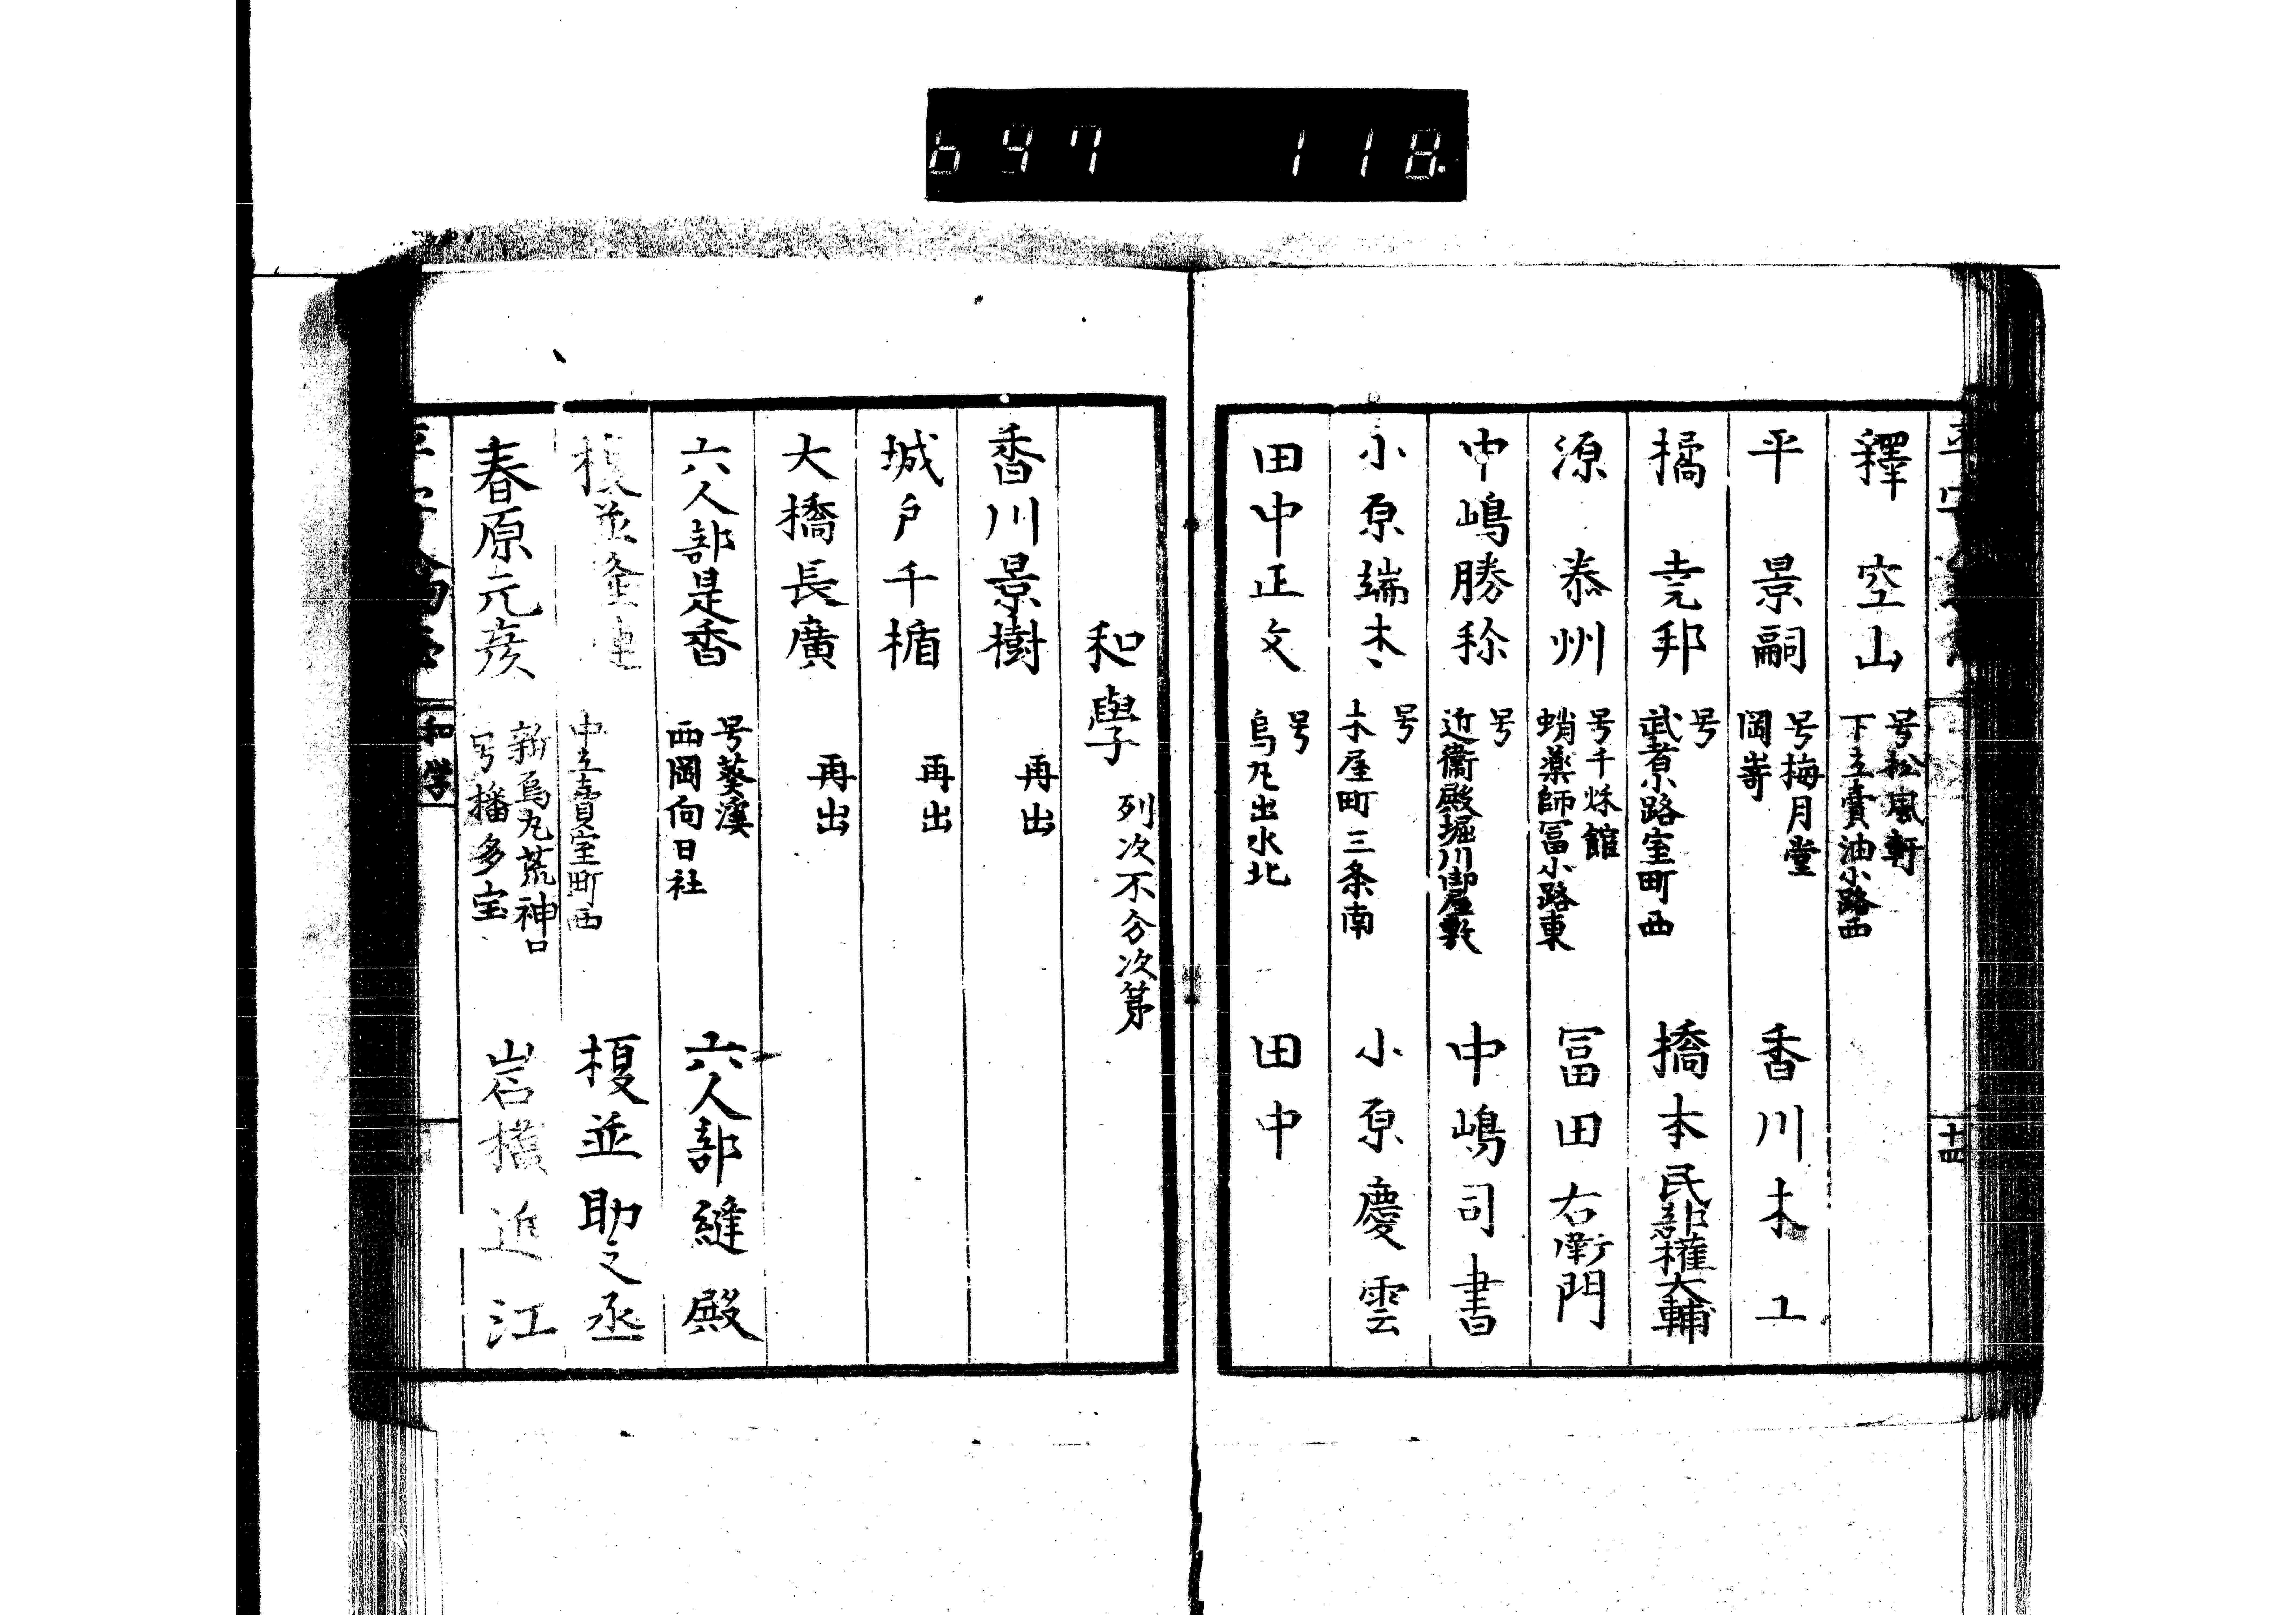 697 118
釋 空山 号松風軒 下立賣油小路西
平 景嗣 号梅月堂 岡嵜 香川木工
橘 堯邦 号 武者小路室町西 橋本民部權大輔
源 泰州 号千秌館 蛸薬師冨小路東 冨田右衛門
中嶋勝秢 号 近衞殿堀川御屋敷 中嶋司書
小原端木 号 木屋町三条南 小原慶雲
田中正文 号 烏丸出水北 田中
十四
和學 列次不分次第
香川景樹 再出
城戸千楯 再出
大橋長廣 再出
六人部是香 号葵渓 西岡向日社 六人部縫殿
榎並 中立賣室町西 榎並助之丞
春原元彦 新烏丸荒神口 号播多宝 岩橋近江
和学